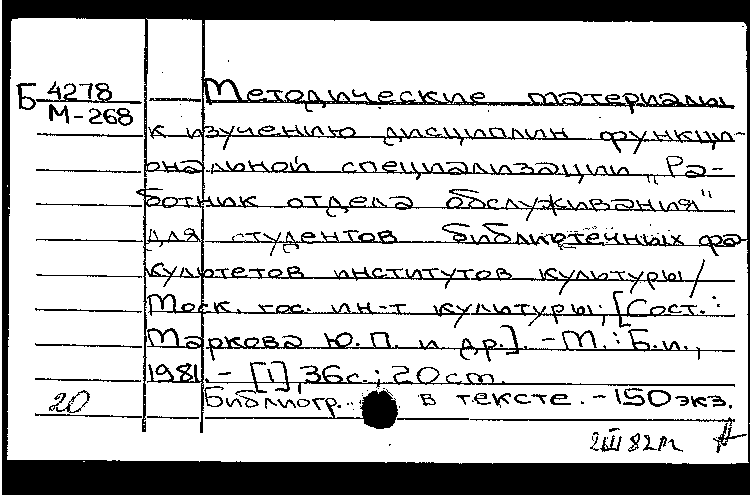 Б 4278
М-268
Методические материалы
к изучению дисциплин функци-
ональной специализации „Ра-
ботник отдела обслуживания"
для студентов библиотечных фа-
культетов институтов культуры /
Моск. гос. ин-т культуры; [Сост.:
Маркова Ю.П. и др.]. - М.: Б.и.,
1981. - [1], 36с.; 20см.
Библиогр. в тексте. - 150экз.
20